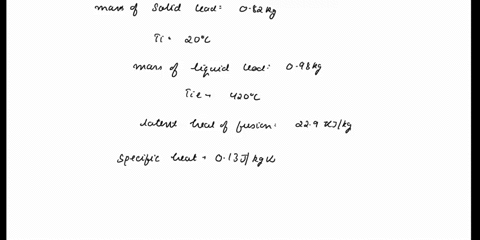 mass of solid lead: 0.82 kg
Ti = 20°C
mass of liquid lead: 0.98 kg
420°C
latent heat of fusion: 22.9 kJ/kg
specific heat = 0.13 J/kg k